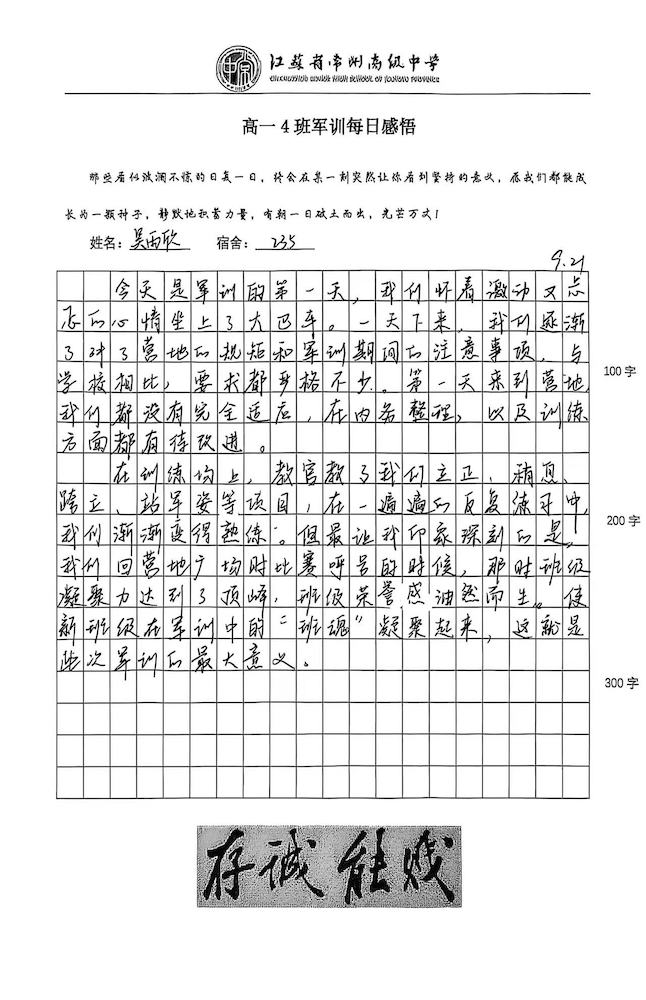 江苏省常州高级中学
CHANGZHOU SENIOR HIGH SCHOOL OF JIANGSU PROVINCE
高一4班军训每日感悟
那些看似波澜不惊的日复一日，将会在某一刻突然让你看到坚持的意义，愿我们都能成
长为一颗种子，静默地积蓄力量，有朝一日破土而出，光芒万丈！
姓名：吴雨欣 宿舍：235
9.21
今天是军训的第一天，我们怀着激动又忐
忑的心情坐上了大巴车。一天下来，我们逐渐
了对了营地的规矩和军训期间的注意事项，与
学校相比，要求都严格不少。第一天来到营地，
100字
我们都没有完全适应，在内务整理，以及训练
方面都有待改进。
在训练场上，教官教了我们立正、稍息、
跨立、站军姿等项目，在一遍遍的反复练习中，
200字
我们渐渐变得熟练。但最让我印象深刻的是，
我们回营地广场时比赛呼号的时候，那时班级
凝聚力达到了顶峰，班级荣誉感油然而生。使
新班级在军训中的“班魂”凝聚起来，这就是
此次军训的最大意义。
300字
存诚能贱